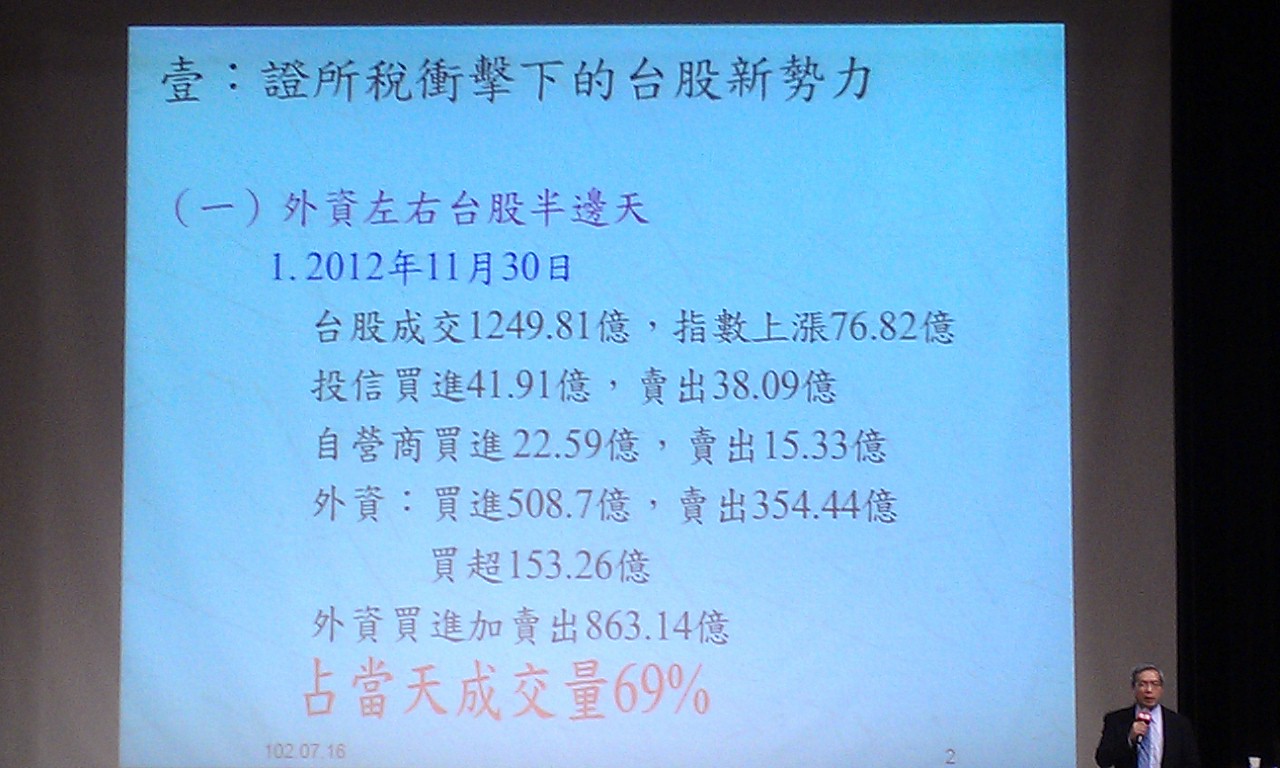 壹：證所稅衝擊下的台股新勢力
（一）外資左右台股半邊天
1. 2012年11月30日
台股成交1249.81億，指數上漲76.82億
投信買進41.91億，賣出38.09億
自營商買進22.59億，賣出15.33億
外資：買進508.7億，賣出354.44億
買超153.26億
外資買進加賣出863.14億
占當天成交量69%
102.07.16
2